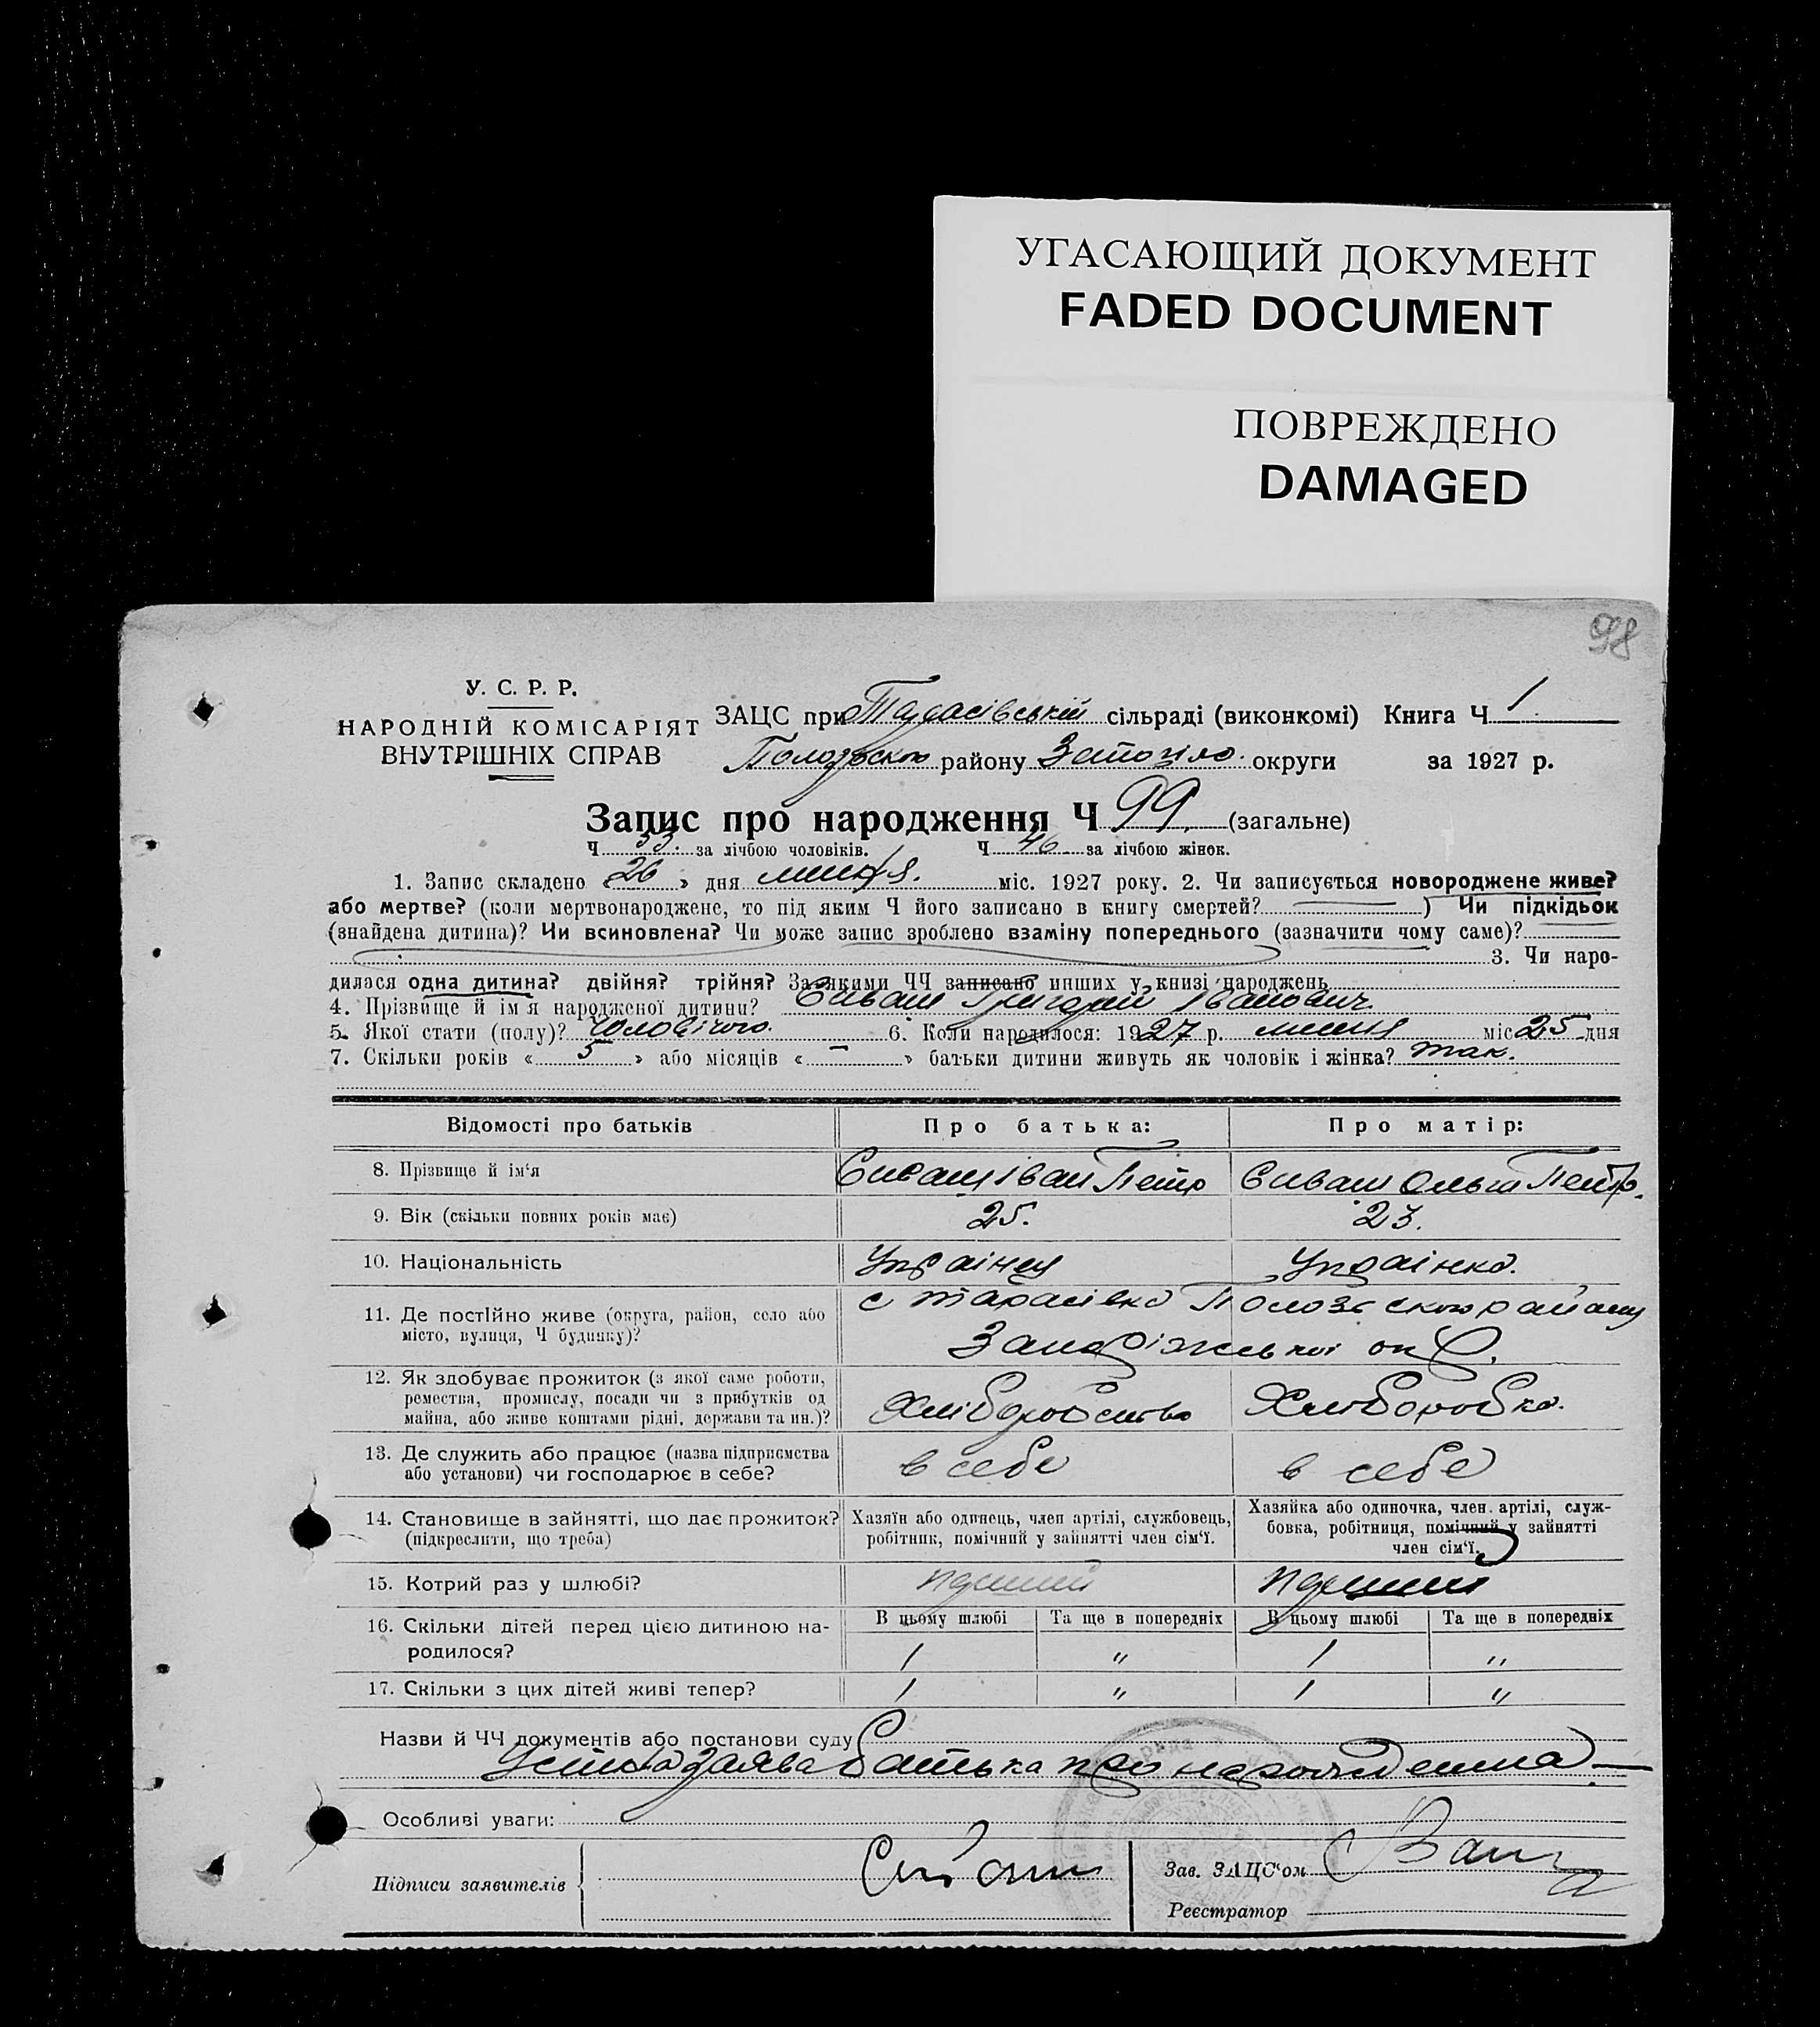 УГАСАЮЩИЙ ДОКУМЕНТ
FADED DOCUMENT
ПОВРЕЖДЕНО
DAMAGED
98
У. С. Р. Р.
НАРОДНІЙ КОМІСАРІЯТ
ВНУТРІШНІХ СПРАВ
ЗАЦС при Тарасівській сільраді (виконкомі) Книга Ч 1
Пологського району Запоріло. округи за 1927 р.
Запис про народження Ч 99. (загальне)
Ч 53. за лічбою чоловіків. Ч 46 за лічбою жінок.
1. Запис складено « 26 » дня липня. міс. 1927 року. 2. Чи записується новороджене живе?
або мертве? (коли мертвонароджене, то під яким Ч його записано в книгу смертей? ) Чи підкідьок
(знайдена дитина)? Чи всиновлена? Чи може запис зроблено взаміну попереднього (зазначити чому саме)?
3. Чи наро-
дилася одна дитина? двійня? трійня? За якими ЧЧ записано инших у книзі народжень
4. Прізвище й ім'я народженої дитини? Сиваш Григорій Іванович.
5. Якої стати (полу)? Чоловічого. 6. Коли народилося: 1927 р. липня міс 25 дня
7. Скільки років « 5 » або місяців « – » батьки дитини живуть як чоловік і жінка? так.
Відомості про батьків Про батька: Про матір:
8. Прізвище й ім'я Сиваш Іван Петр Сиваш Ольга Петр.
9. Вік (скільки повних років має) 25. 23.
10. Національність Українец Українка.
11. Де постійно живе (округа, район, село або с Тарасівка Пологського району
місто, вулиця, Ч будинку)? Запоріжської окр.
12. Як здобуває прожиток (з якої саме роботи,
ремества, промислу, посади чи з прибутків од
майна, або живе коштами рідні, держави та ин.)? Хліборобство Хлиборобка.
13. Де служить або працює (назва підприємства
або установи) чи господарює в себе? в себе в себе
14. Становище в зайнятті, що дає прожиток? (підкреслити, що треба)
Хазяїн або одинець, член артілі, службовець,
робітник, помічний у зайнятті член сім'ї.
Хазяйка або одиночка, член артілі, служ-
бовка, робітниця, помічний у зайнятті
член сім'ї.
15. Котрий раз у шлюбі? перший перший
16. Скільки дітей перед цією дитиною на-
родилося?
В цьому шлюбі Та ще в попередніх В цьому шлюбі Та ще в попередніх
1 " 1 "
17. Скільки з цих дітей живі тепер? 1 " 1 "
Назви й ЧЧ документів або постанови суду
Устна заява батька про народження –
Особливі уваги:
Підписи заявителів Сиваш Зав. ЗАЦС'ом
Реєстратор